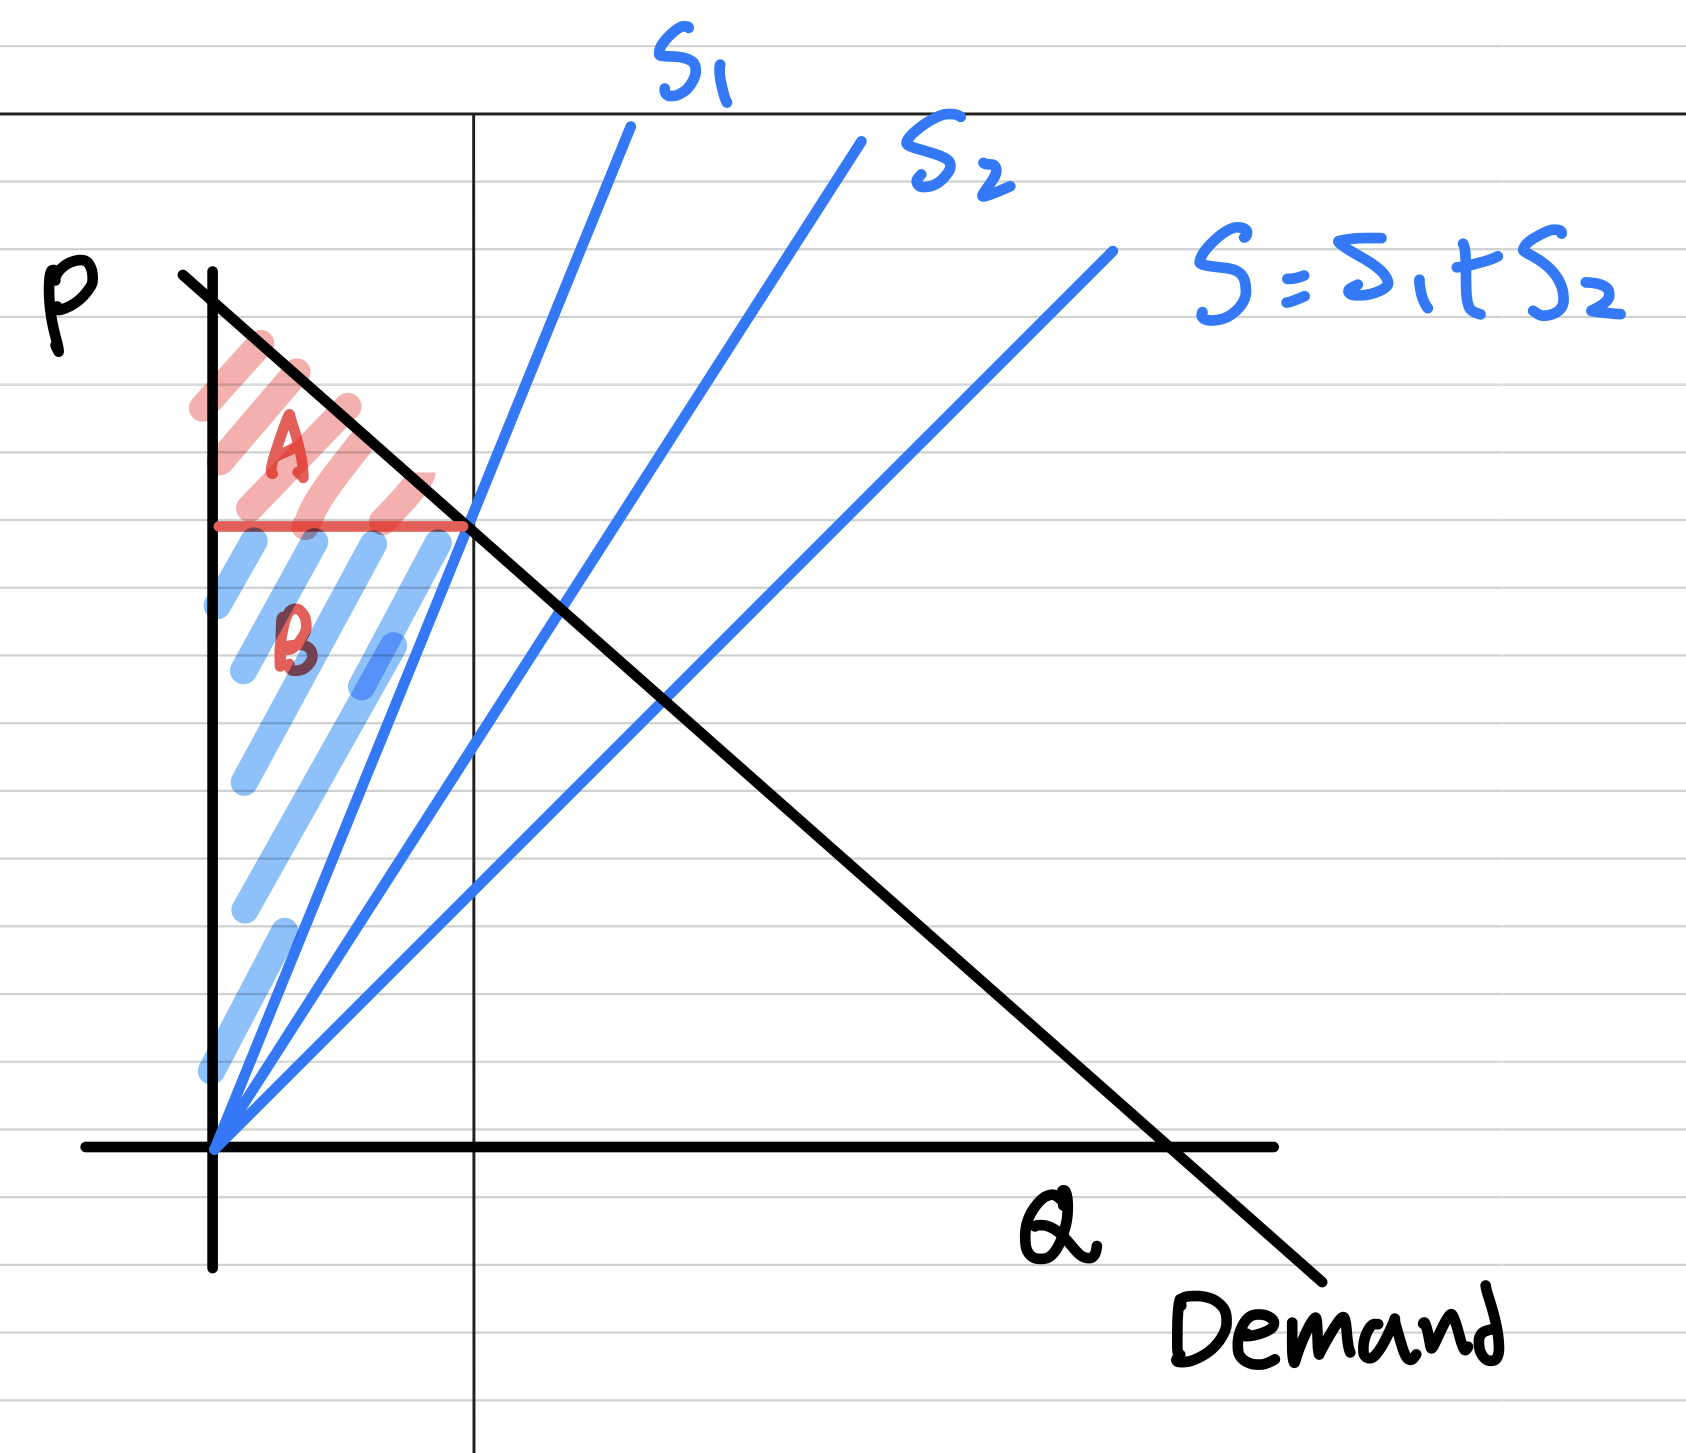 S1
S2
S=S1+S2
P
A
B
Q
Demand